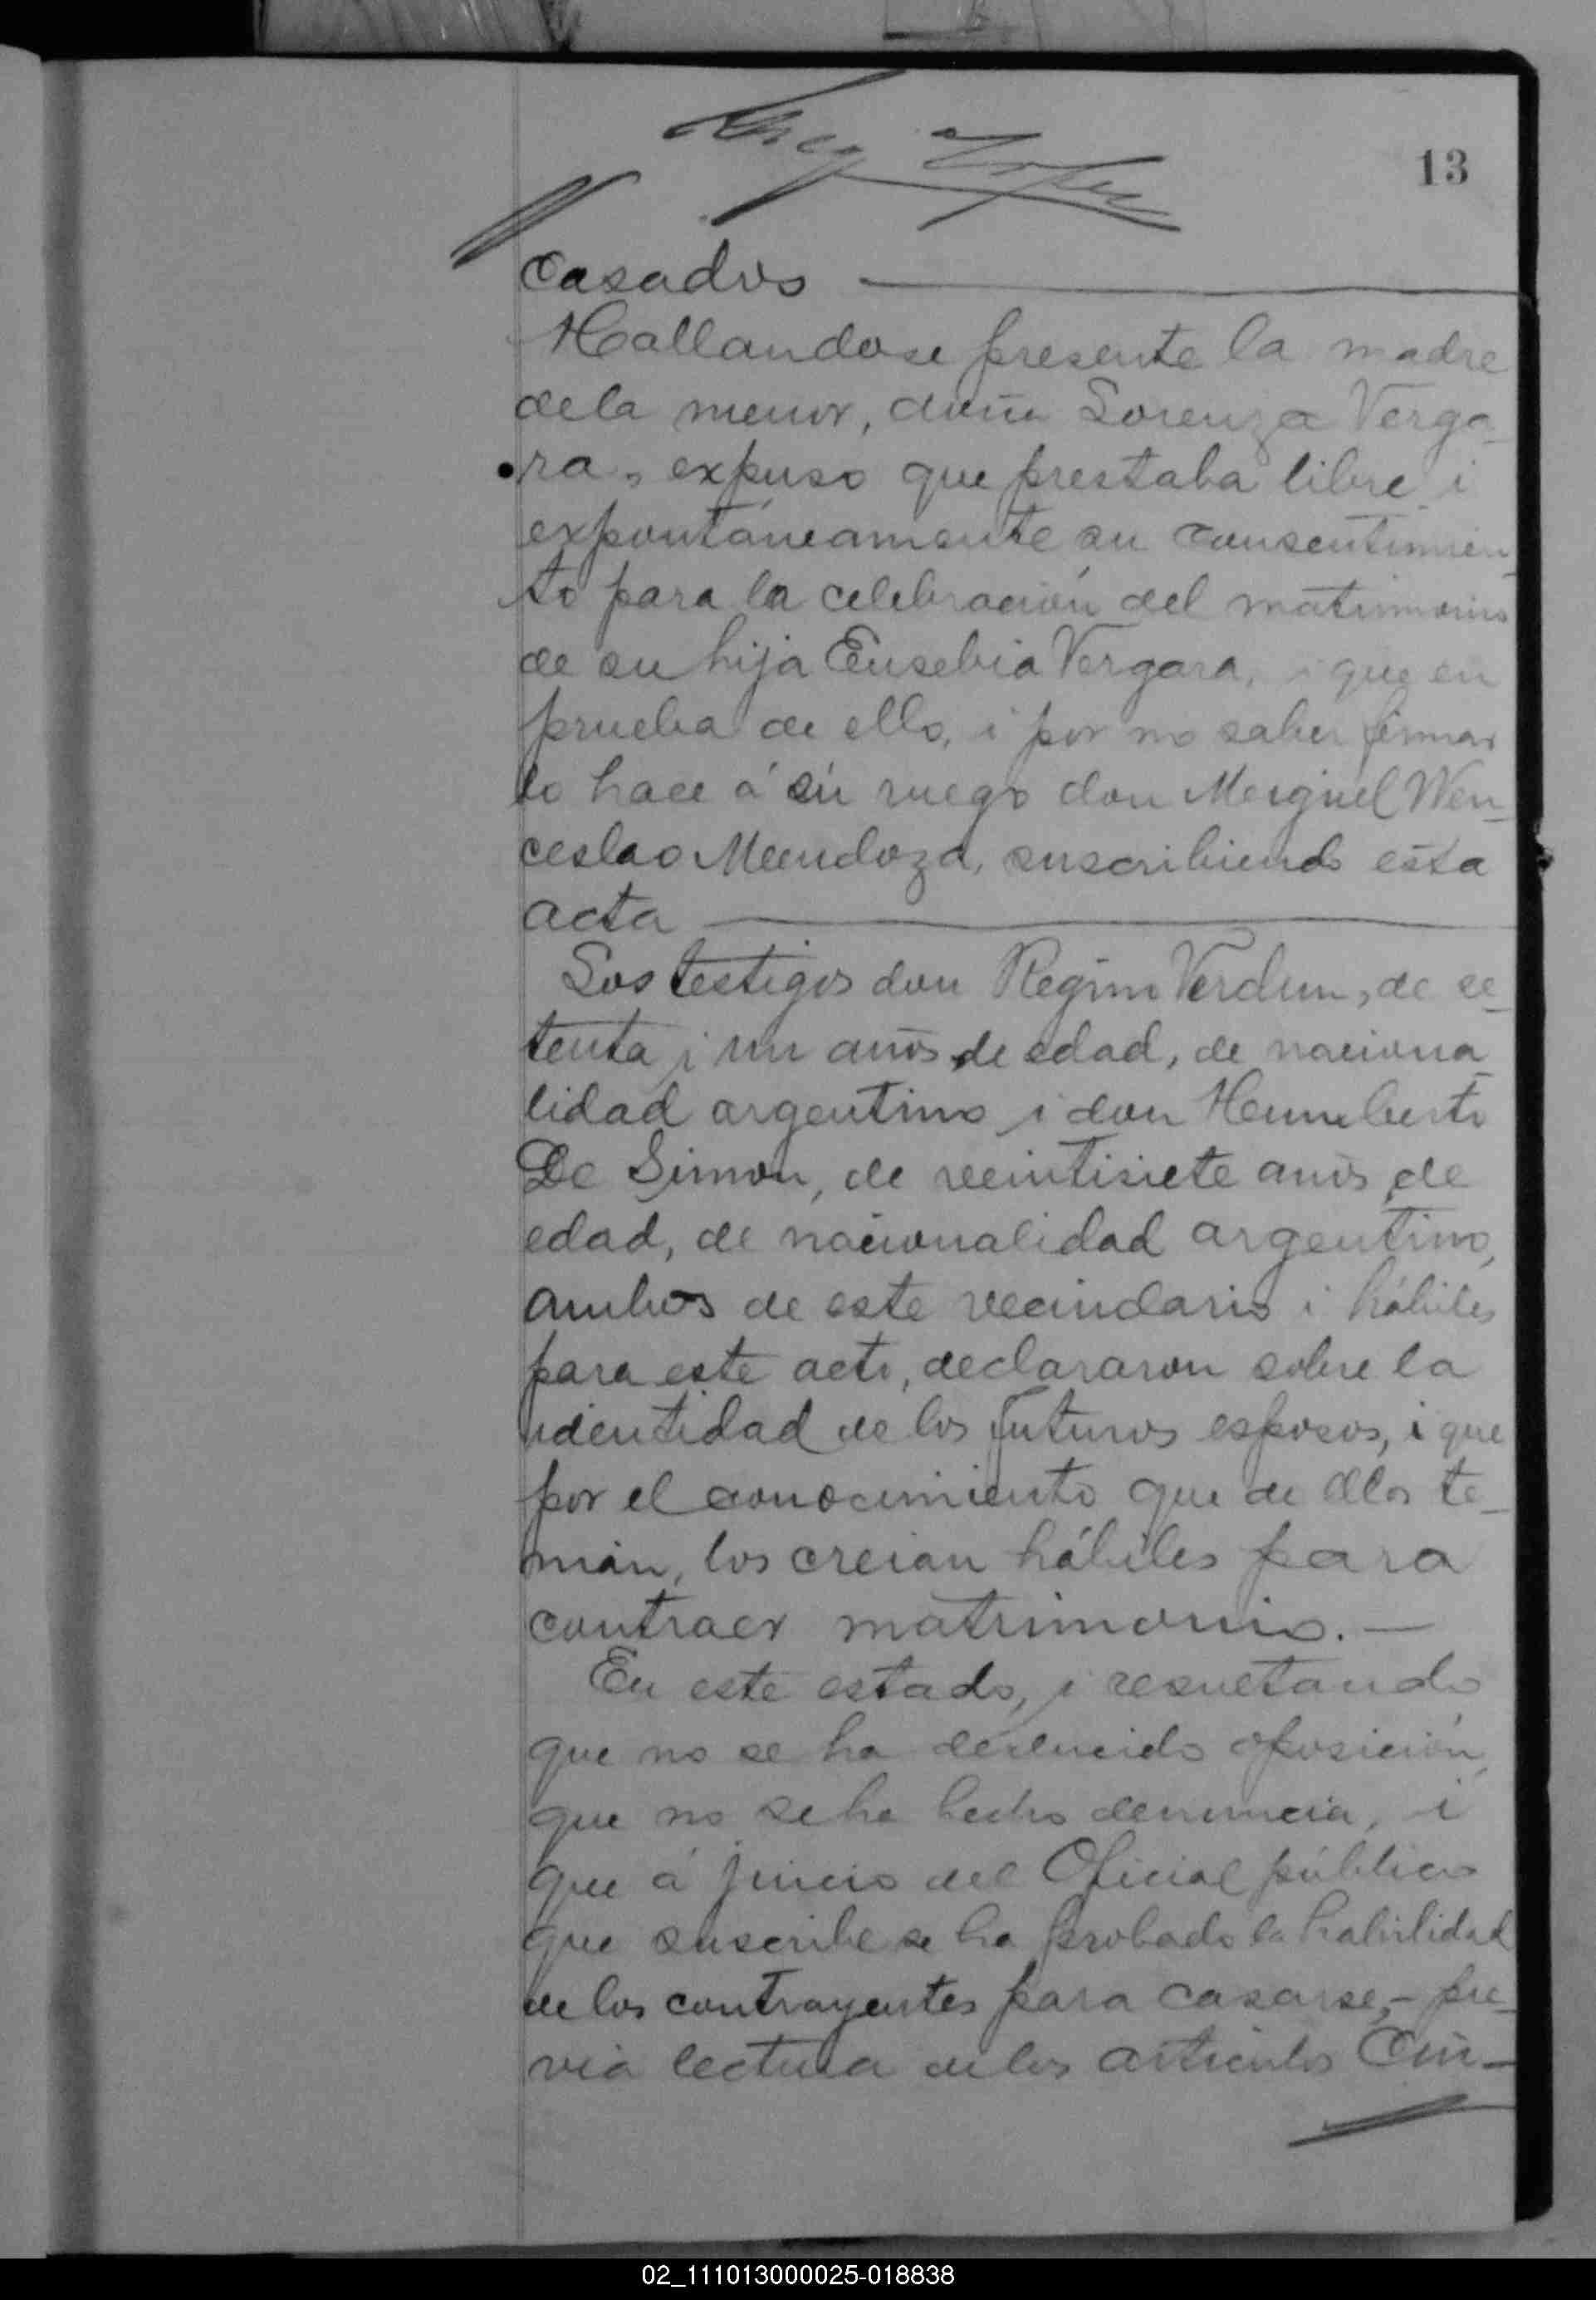 13
casados
Hallandose presente la madre
de la menor, doña Lorenza Verga-
ra, expuso que prestaba libre i
expontáneamente su consentimien-
to para la celebración del matrimonio
de su hija Eusebia Vergara, i que en
prueba de ello, i por no saber firmar
lo hace á su ruego don Meiguel Wen-
ceslao Mendoza, suscribiendo esta
acta
Los testigos don Regino Verdun, de se-
tenta i un años de edad, de naciona-
lidad argentino i don Humberto
De Simon, de veintisiete años de
edad, de nacionalidad argentino,
ambos de este vecindario i hábiles
para este acto, declararon sobre la
identidad de los futuros esposos, i que
por el conocimiento que de ellos te-
nian, los creian hábiles para
contraer matrimonio.—
En este estado, i resultando
que no se ha deducido oposición,
que no se ha hecho denuncia, i
que á juicio del Oficial público
que suscribe se ha probado la habilidad
de los contrayentes para casarse,- pre-
via lectura de los articulos Cin-
02_111013000025-018838